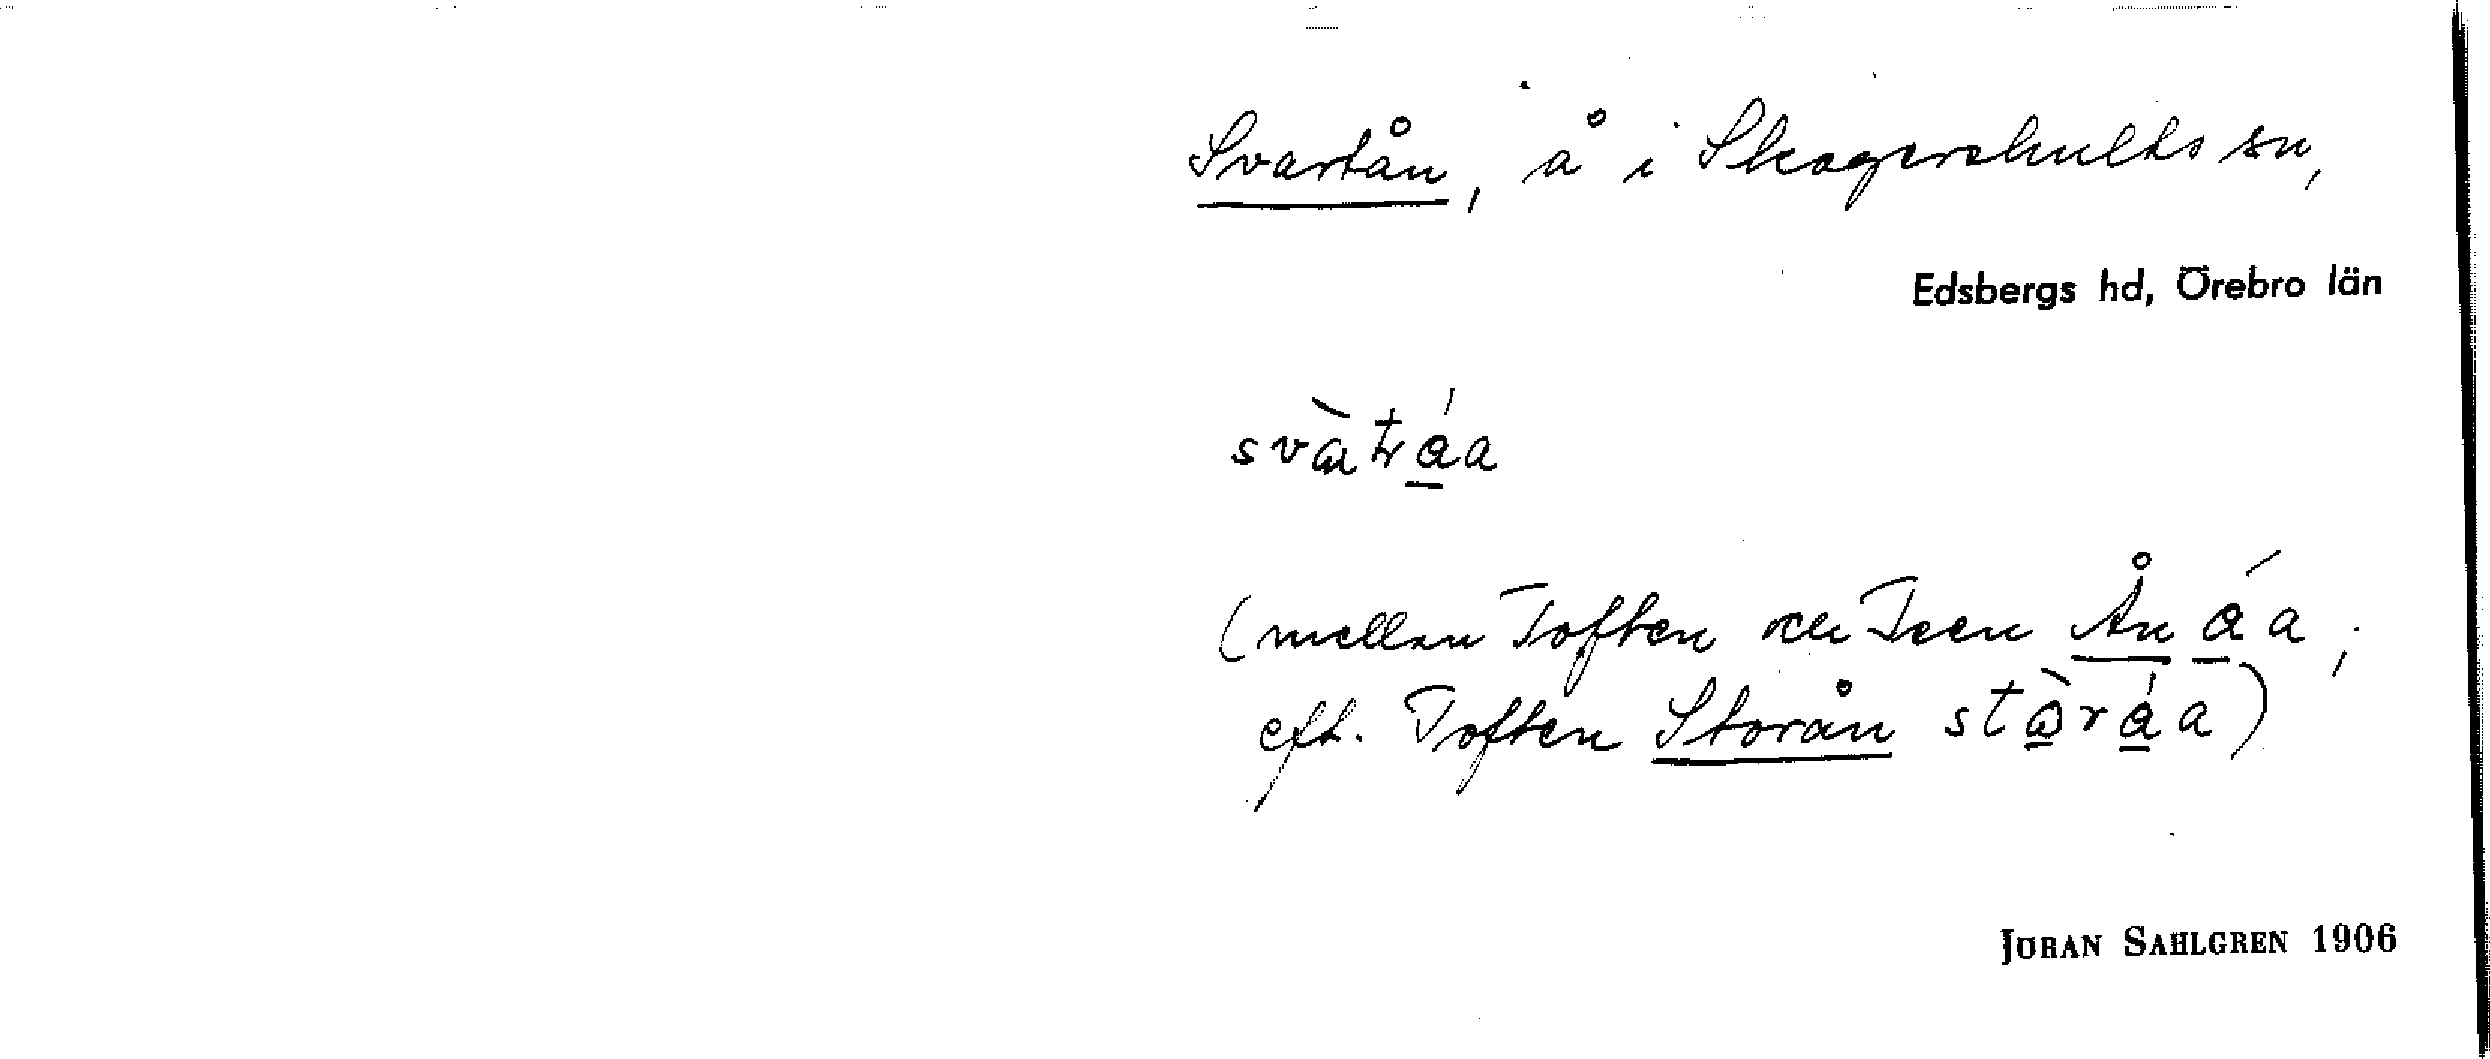 Svartån, å i Skagershults sn,
Edsbergs hd, Örebro län
svàtráa
(mellan Toften och Teen Ån åa,
eft. Toften Storån stòråa)
JÖRAN SAHLGREN 1906